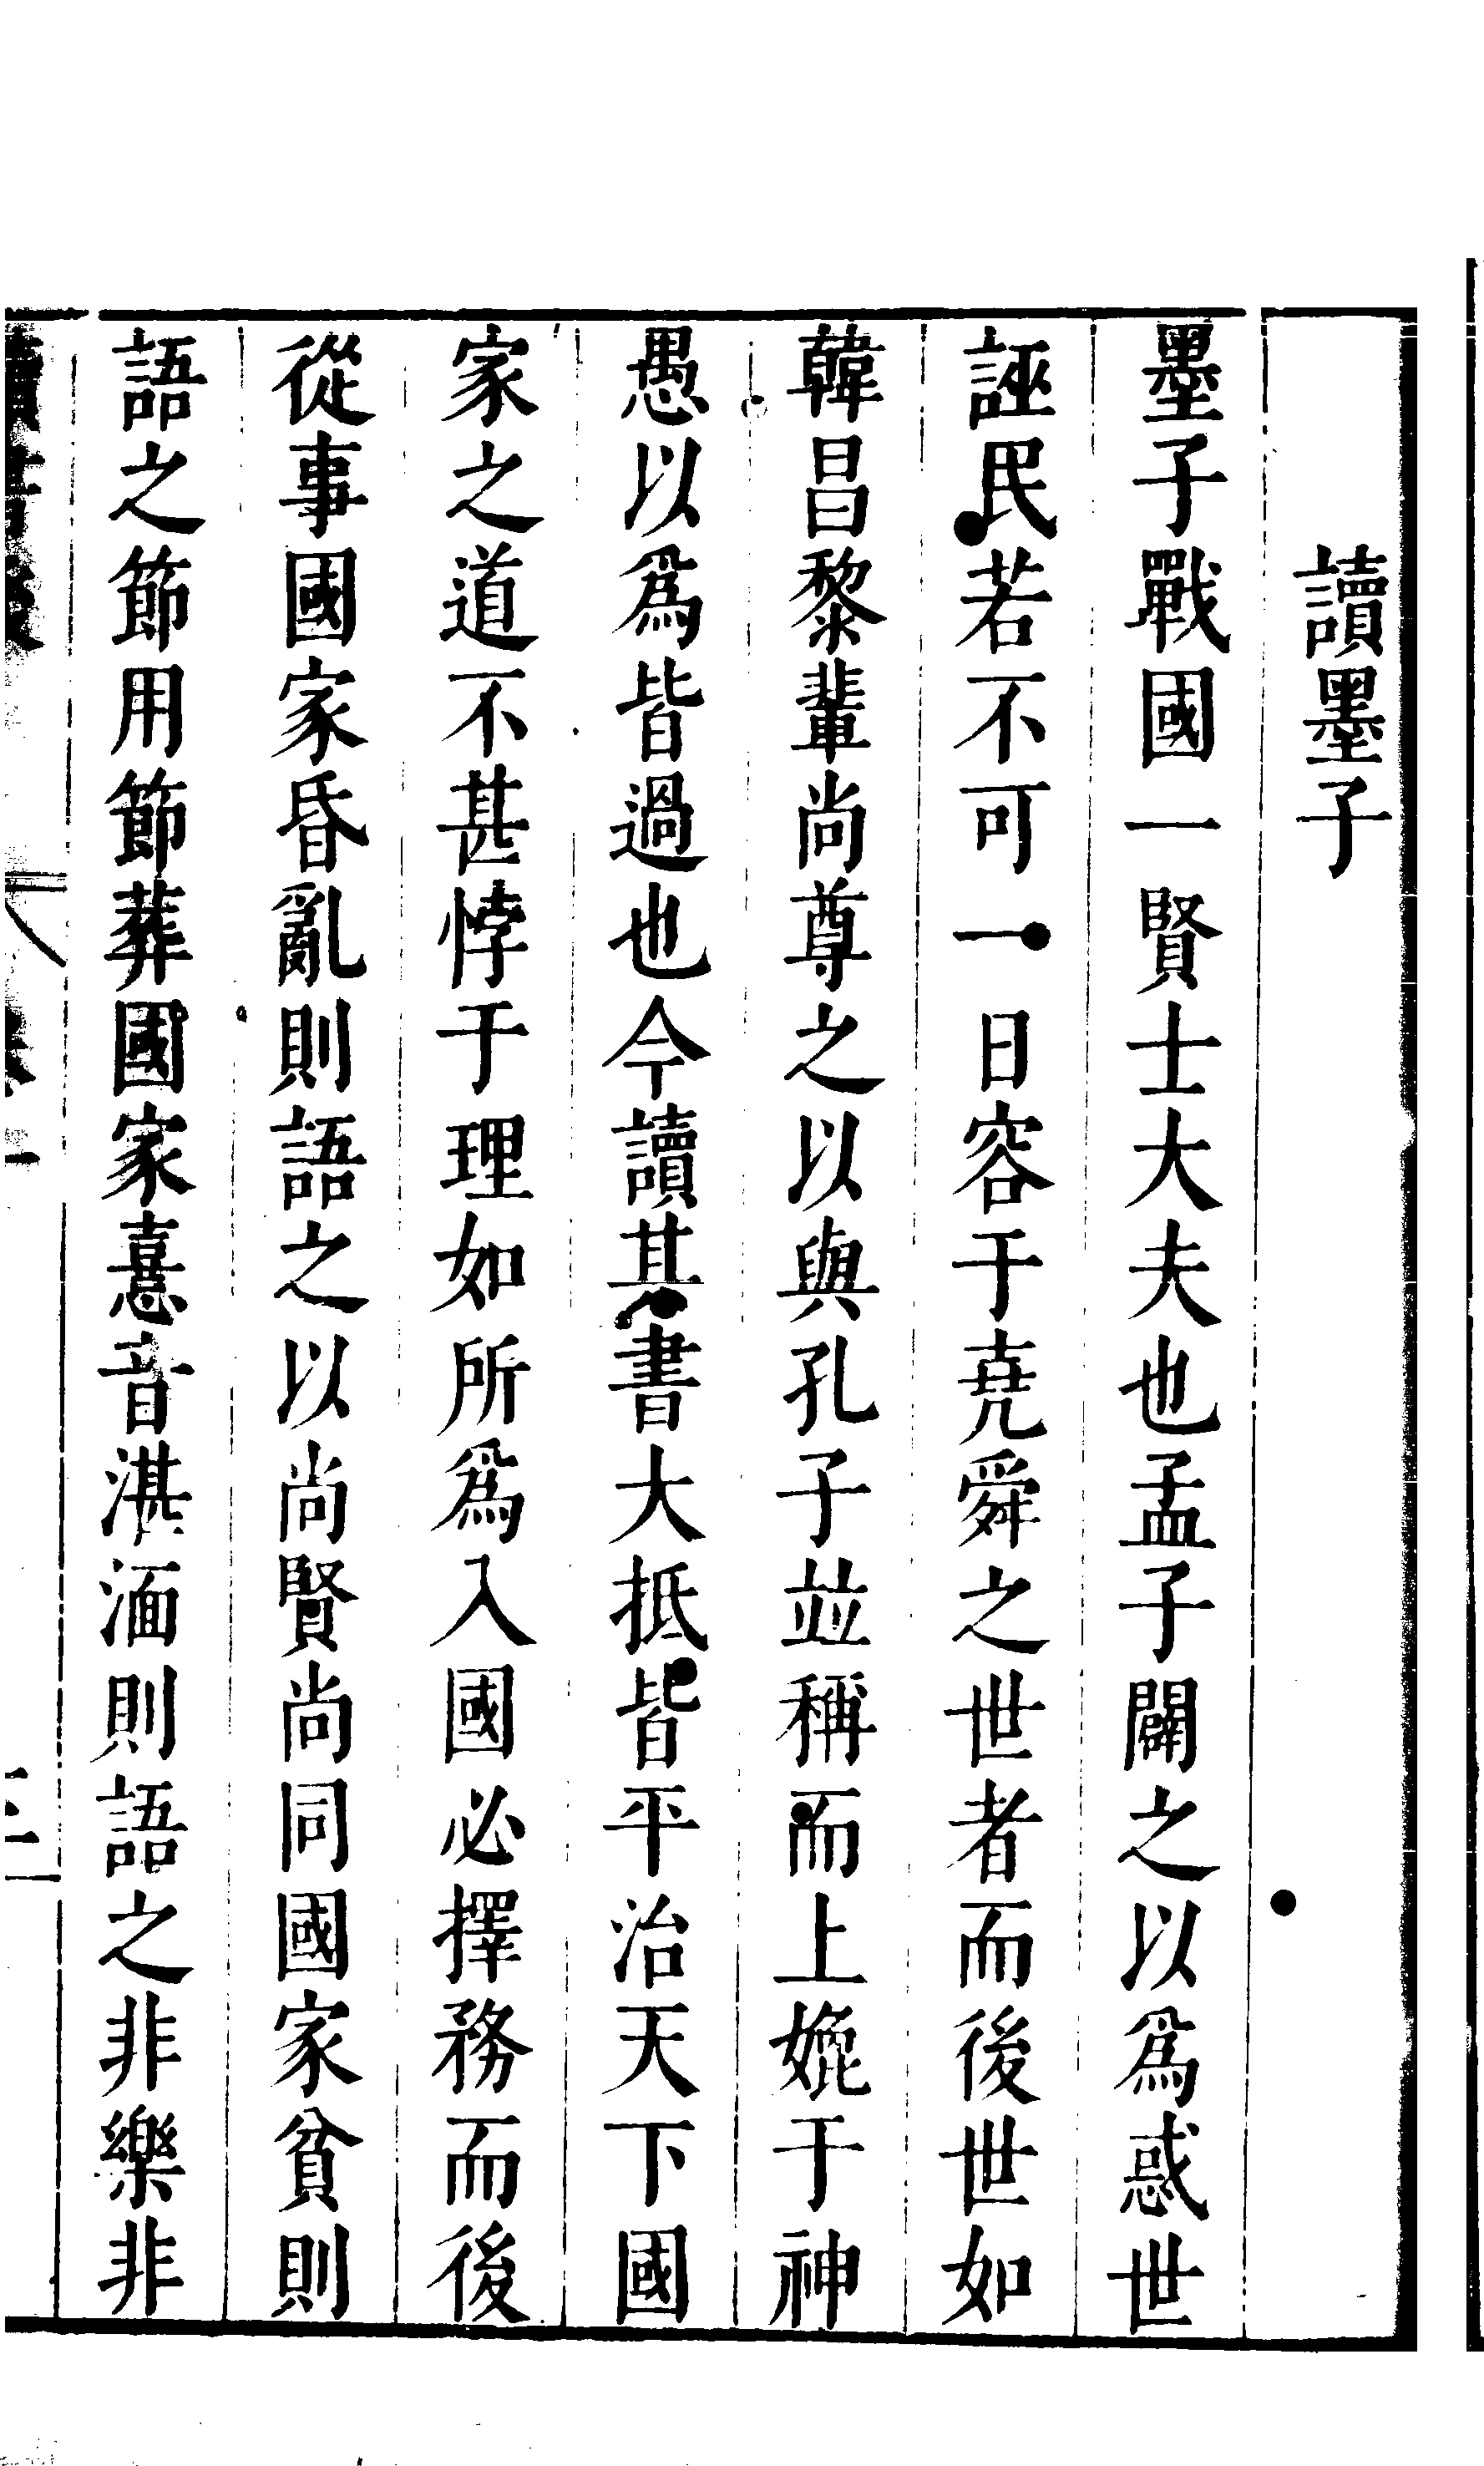 讀墨子
墨子戰國一賢士大夫也孟子闢之以爲惑世
誣民若不可一日容于堯舜之世者而後世如
韓昌黎輩尚尊之以與孔子並稱而上媲于神
愚以爲皆過也今讀其書大抵皆平治天下國
家之道不甚悖于理如所爲入國必擇務而後
從事國家昏亂則語之以尚賢尚同國家貧則
語之節用節葬國家憙音湛湎則語之非樂非